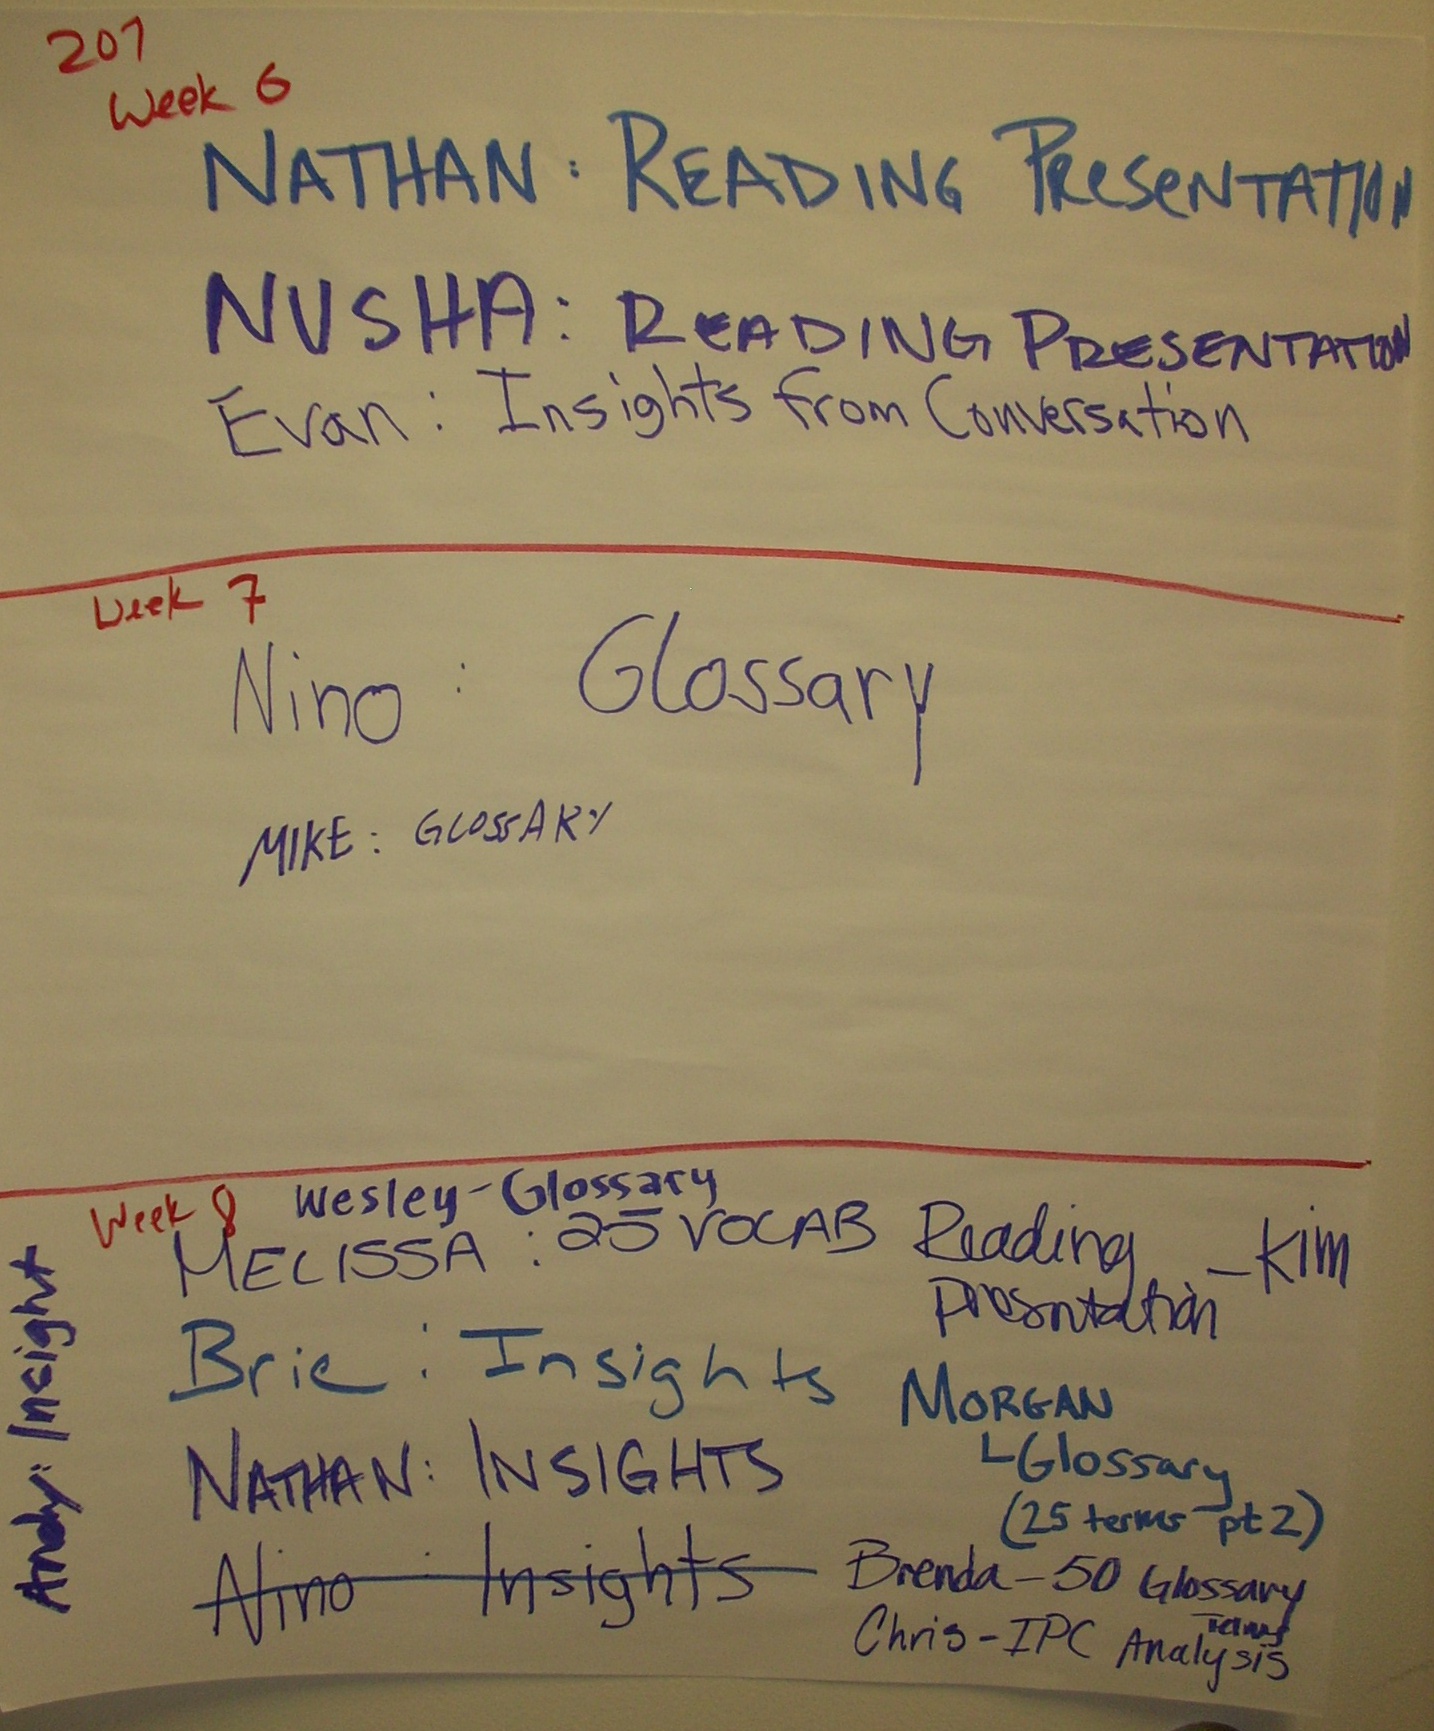 207
Week 6
NATHAN: READING PRESENTATION
NUSHA: READING PRESENTATION
Evan: Insights from Conversation
Week 7
Nino: Glossary
MIKE: GLOSSARY
Week 8
Wesley-Glossary
MELISSA: 25 VOCAB
Brie: Insights
NATHAN: INSIGHTS
Nino: Insights
Andy: Insight
Reading - Kim
Presntation
MORGAN
Glossary
(25 terms pt 2)
Brenda-50 Glossary
Terms
Chris-IPC Analysis